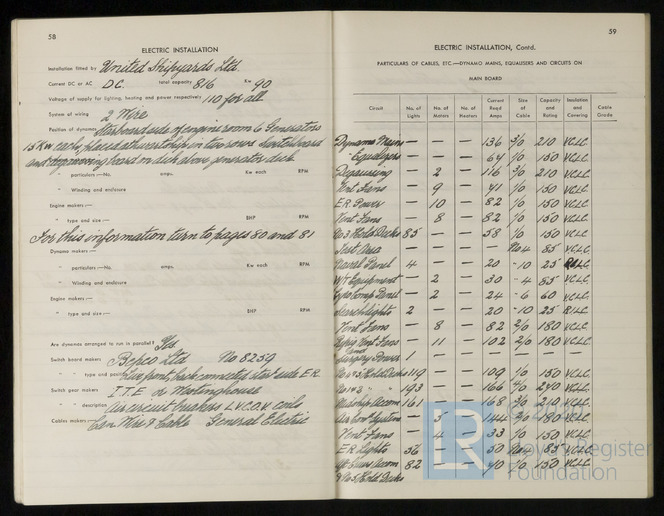 58
ELECTRIC INSTALLATION
Installation fitted by United Shipyards Ltd.
Current DC or AC D.C. total capacity 816 Kw 90
Voltage of supply for lighting, heating and power respectively 110 for all
System of wiring 2 Wire
Position of dynamos Starboard side of engine room 6 Generators
15 Kw each, placed athwartship in two rows Switchboard
and degaussing board on deck above generator deck
" particulars—No. amps. Kw each RPM
" Winding and enclosure
Engine makers—
" type and size— BHP RPM
For this information turn to pages 80 and 81
Dynamo makers—
" particulars—No. amps. Kw each RPM
" Winding and enclosure
Engine makers—
" type and size— BHP RPM
Are dynamos arranged to run in parallel? Yes.
Switch board makers Bepco Ltd No 8259
" " type and position Live front, back connected star'd side E.R
Switch gear makers I.T.E or Westinghouse
" " description Air circuit breakers L.V.C.O.V. coil
Cables makers Can Wire & Cable General Electric
59
ELECTRIC INSTALLATION, Contd.
PARTICULARS OF CABLES, ETC.—DYNAMO MAINS, EQUALISERS AND CIRCUITS ON
MAIN BOARD
Circuit No. of Lights No. of Motors No. of Heaters Current Reqd Amps Size of Cable Capacity and Rating Insulation and Covering Cable Grade
Dynamo Mains — — — 136 3/0 210 VCLC
" Equalizers — — — 64 1/0 150 VCLC
Degaussing — 2 — 116 3/0 210 VCLC
Vent Fans — 9 — 41 1/0 150 VCLC
E.R Power — 10 — 82 1/0 150 VCLC
Vent Fans — 8 — 82 1/0 150 VCLC
No 3 Hold Decks 85 — — 58 1/0 150 VCLC
— — — — No 4 85 VCLC
Panel 4 — — 20 -10 25 RLLC
W/T Equipment — 2 — 30 -4 85 VCLC
Gyro Comp Panel — 2 — 24 -6 60 VCLC
Searchlights 2 — — 20 -10 25 RLLC
Vent Fans — 8 — 82 2/0 180 VCLC
Vent Fans — 11 — 102 2/0 180 VCLC
Surgery Power 1 — — — — — —
No 2 & 3 Hold Decks 119 — — 109 1/0 150 VCLC
No 1 & 2 " " 193 — — 166 4/0 240 VCLC
Accom 161 — — 168 3/0 210 VCLC
System — 5 — 144 2/0 180 VCLC
Vent Fans — 4 — 33 1/0 150 VCLC
E.R Lights 56 — — 50 No 4 85 VCLC
Accom 82 — — 70 1/0 150 VCLC
& No 5 Hold Decks
LR
Lloyd's Register
Foundation